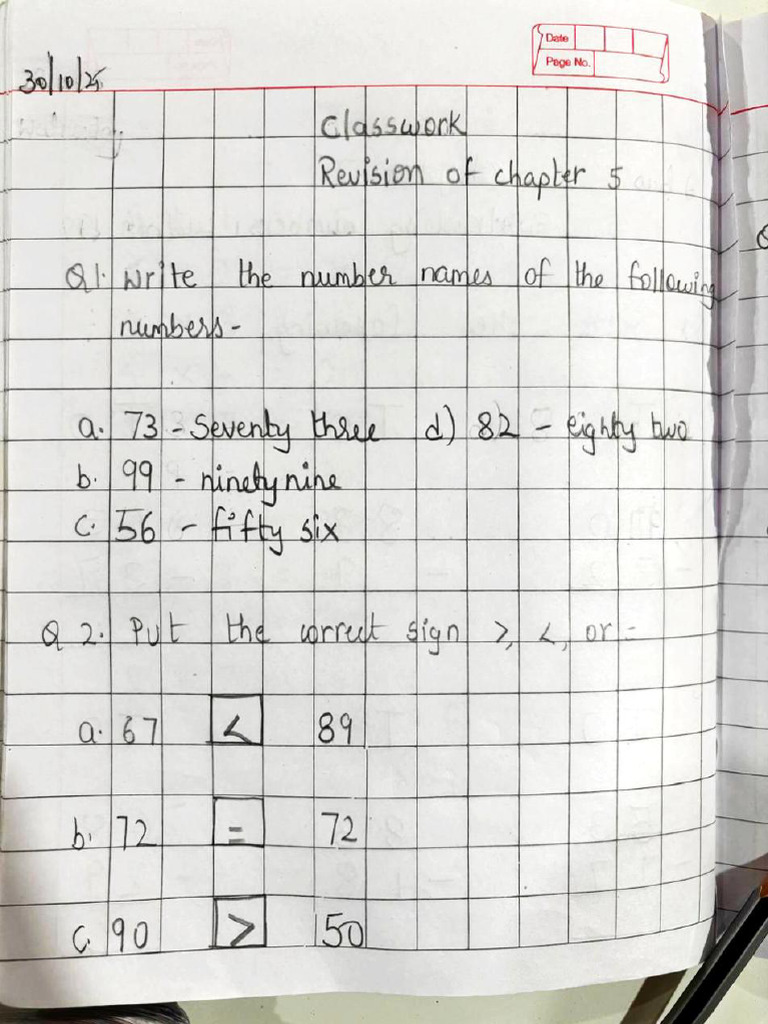 Date
Page No.
30/10/25
Classwork
Revision of chapter 5
Q1. Write the number names of the following
numbers-
a. 73 - Seventy three d) 82 - eighty two
b. 99 - ninety nine
c. 56 - fifty six
Q 2. Put the correct sign >, <, or =
a. 67 < 89
b. 72 = 72
c. 90 > 50